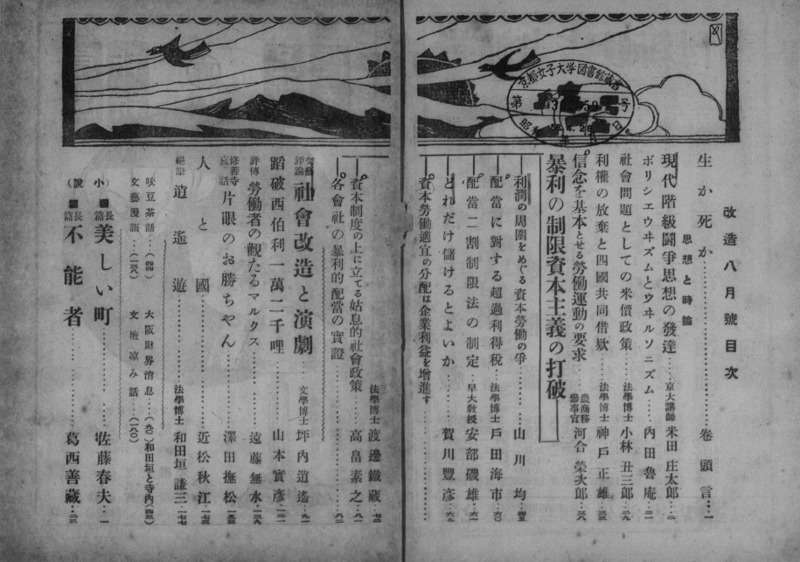 改造八月號目次
生か死か………卷頭言…一
思想と時論
現代階級鬪爭思想の發達…京大講師 米田庄太郎…二
ボリシエウヰズムとウヰルソニズム…内田魯庵
社會問題としての米價政策…法學博士 小林丑三郎…元
利權の放棄と四國共同借欵…法學博士 神戸正雄
信念を基本とせる勞働運動の要求…農商務參事官 河合榮次郎…三八
暴利の制限資本主義の打破
利潤の周圍をめぐる資本勞働の爭…山川均…四五
配當に對する超過利得稅…法學博士 戸田海市…六〇
配當二割制限法の制定…早大敎授 安部磯雄…六一
どれだけ儲けるとよいか…賀川豐彦
資本勞働適宜の分配は企業利益を增進す
法學博士 渡邊鐵藏
資本制度の上に立てる姑息的社會政策…高畠素之…八一
各會社の暴利的配當の實證
文藝評論 社會改造と演劇…文學博士 坪内逍遙
踏破西伯利一萬二千哩…山本實彦
評傳 勞働者の觀たるマルクス…遠藤無水
修善寺哀話 片眼のお勝ちやん…澤田撫松
人と國…近松秋江
逍遙遊…法學博士 和田垣謙三
吹豆茶話…(四四) 大阪財界消息…和田垣と寺内
文藝漫話 文壇凉み話…(一八〇)
小說 長篇 美しい町…佐藤春夫…一
長篇 不能者…葛西善藏
京都女子大学図書館藏書
第 号